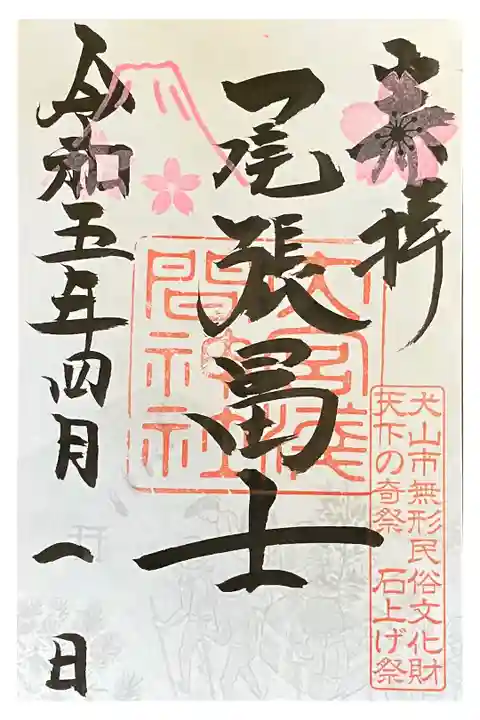 奉拝
尾張冨士
大宮浅間神社
犬山市無形民俗文化財
天下の奇祭 石上げ祭
令和五年四月一日